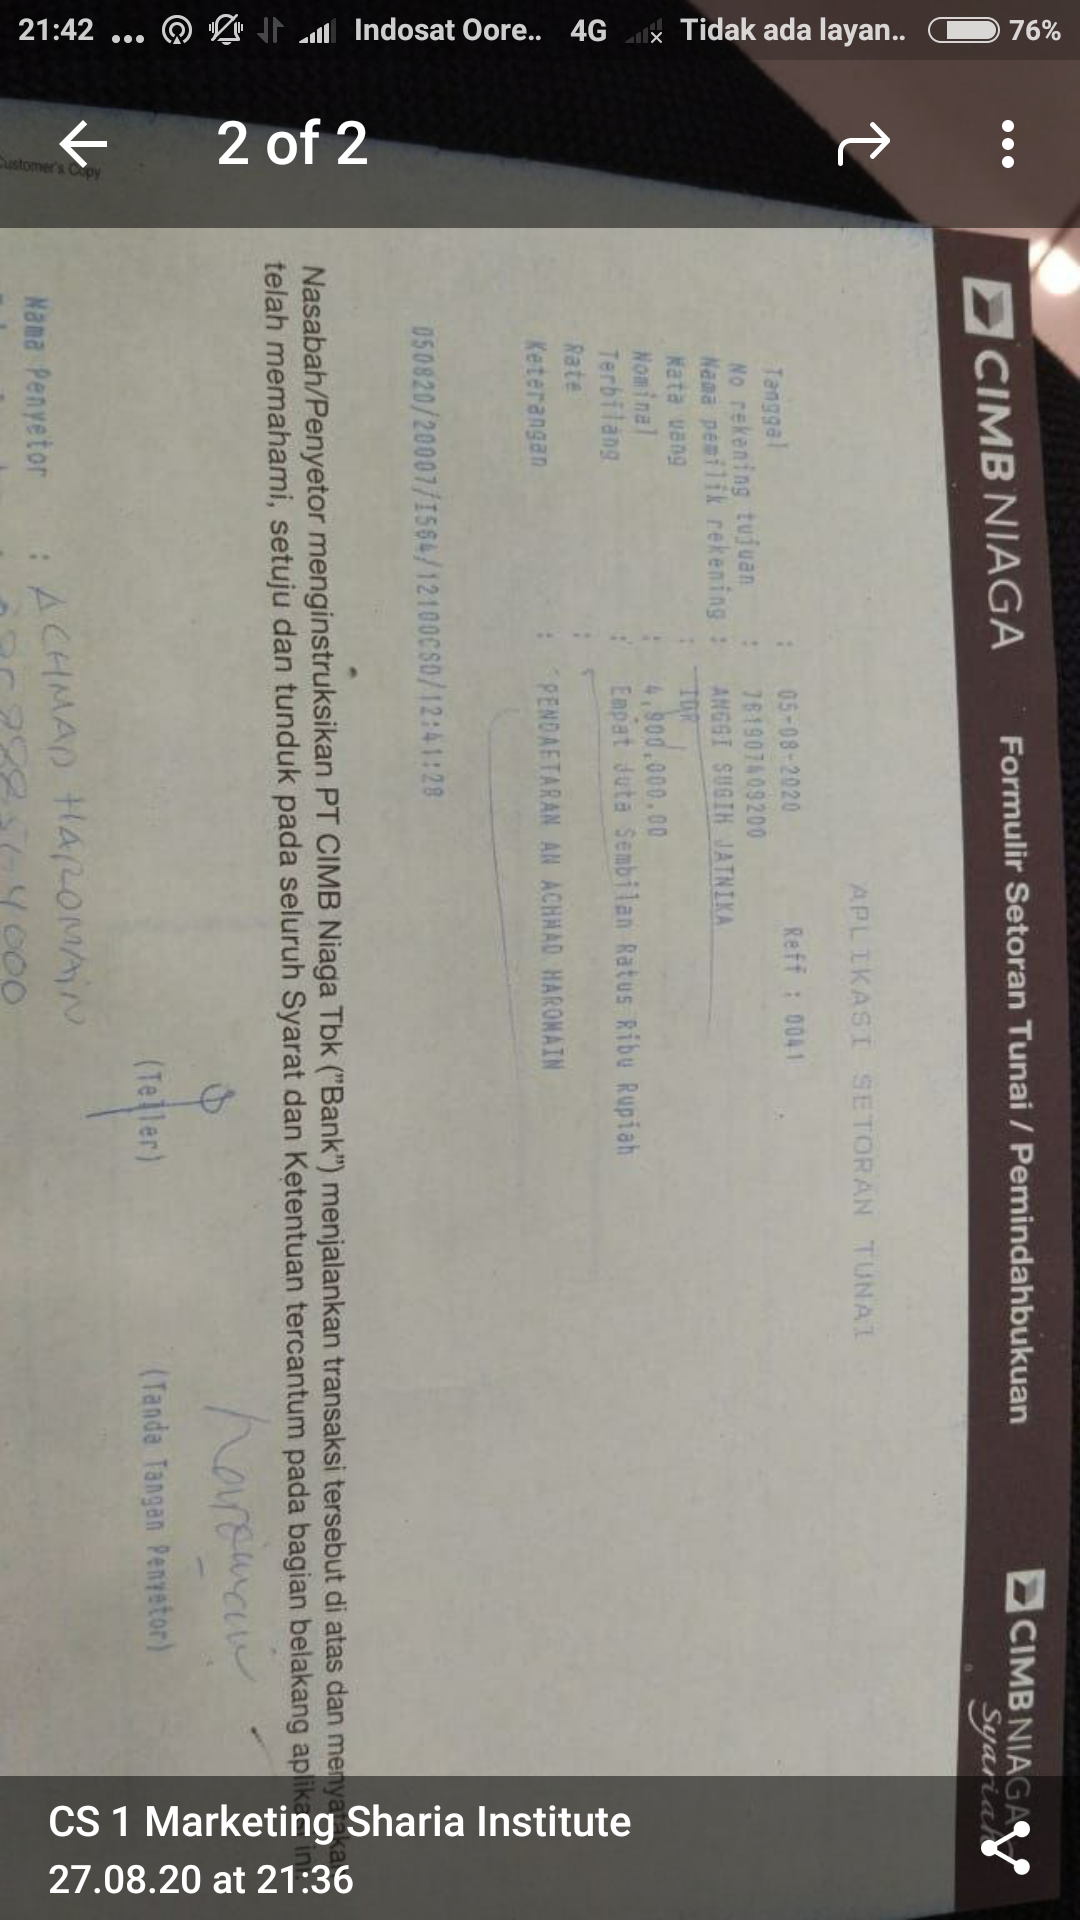 21:42 ... Indosat Oore.. 4G Tidak ada layan.. 76%
2 of 2
CIMB NIAGA Formulir Setoran Tunai / Pemindahbukuan CIMB NIAGA Syariah
APLIKASI SETORAN TUNAI
Tanggal : 05-08-2020 Reff : 0041
No rekening tujuan : 761907409200
Nama pemilik rekening : ANGGI SUGIH JATNIKA
Mata uang : IDR
Nominal : 4,900,000.00
Terbilang : Empat Juta Sembilan Ratus Ribu Rupiah
Rate :
Keterangan : PENDAFTARAN AN ACHMAD HAROMAIN
050820/20007/I564/12100CSO/12:41:28
Nasabah/Penyetor menginstruksikan PT CIMB Niaga Tbk ("Bank") menjalankan transaksi tersebut di atas dan menyatakan
telah memahami, setuju dan tunduk pada seluruh Syarat dan Ketentuan tercantum pada bagian belakang aplikasi ini.
haromain
(Teller) (Tanda Tangan Penyetor)
Nama Penyetor : ACHMAD HAROMAIN
Customer's Copy
CS 1 Marketing Sharia Institute
27.08.20 at 21:36